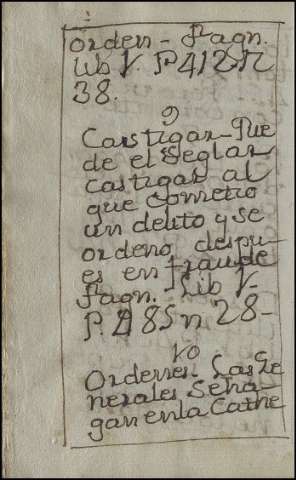 Orden - Pagn.
Lib V. P 412 N
38.
9
Castigar - Pue
de el Seglar
castigar al
que cometio
un delito y se
ordeno despu-
es en fraude
Pagn. Lib V-
P. 485 n 28-
10
Ordenes Las Ge
nerales Se ha-
gan en la Cathe